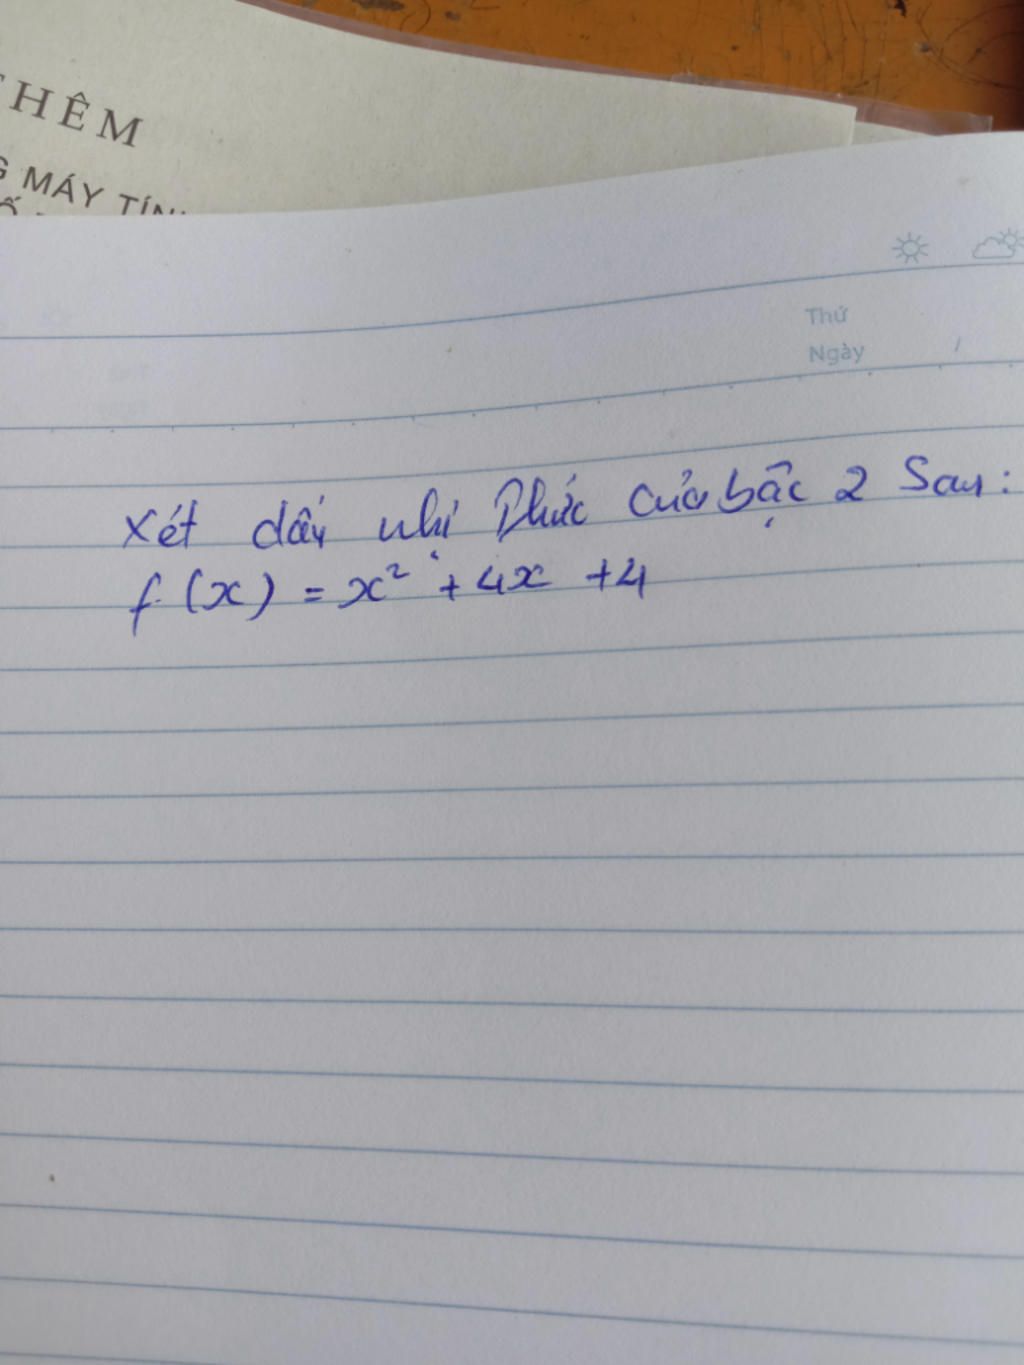 THÊM
G MÁY TÍN
Thứ
Ngày /
Xét dấu nhị thức của bậc 2 Sau:
f(x) = x² + 4x + 4